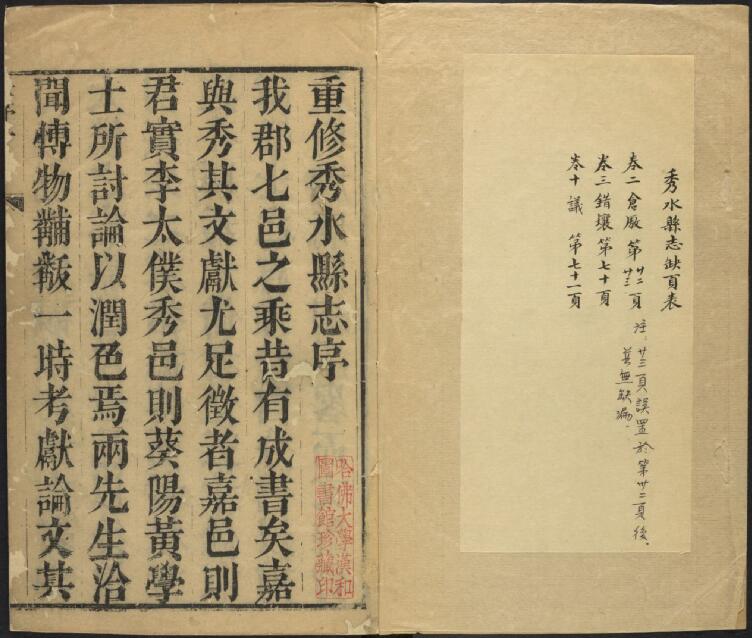 秀水縣志缺頁表
卷二倉厫第廿二廿三頁
注:廿三頁誤置於第廿二頁後、
並無缺漏.
卷三錯壤第七十頁
卷十議 第七十一頁
重修秀水縣志序
我郡七邑之乘昔有成書矣嘉
與秀其文獻尤足徵者嘉邑則
君實李太僕秀邑則葵陽黃學
士所討論以潤色焉兩先生洽
聞博物黼黻一時考獻論文其
哈佛大學漢和
圖書館珍藏印